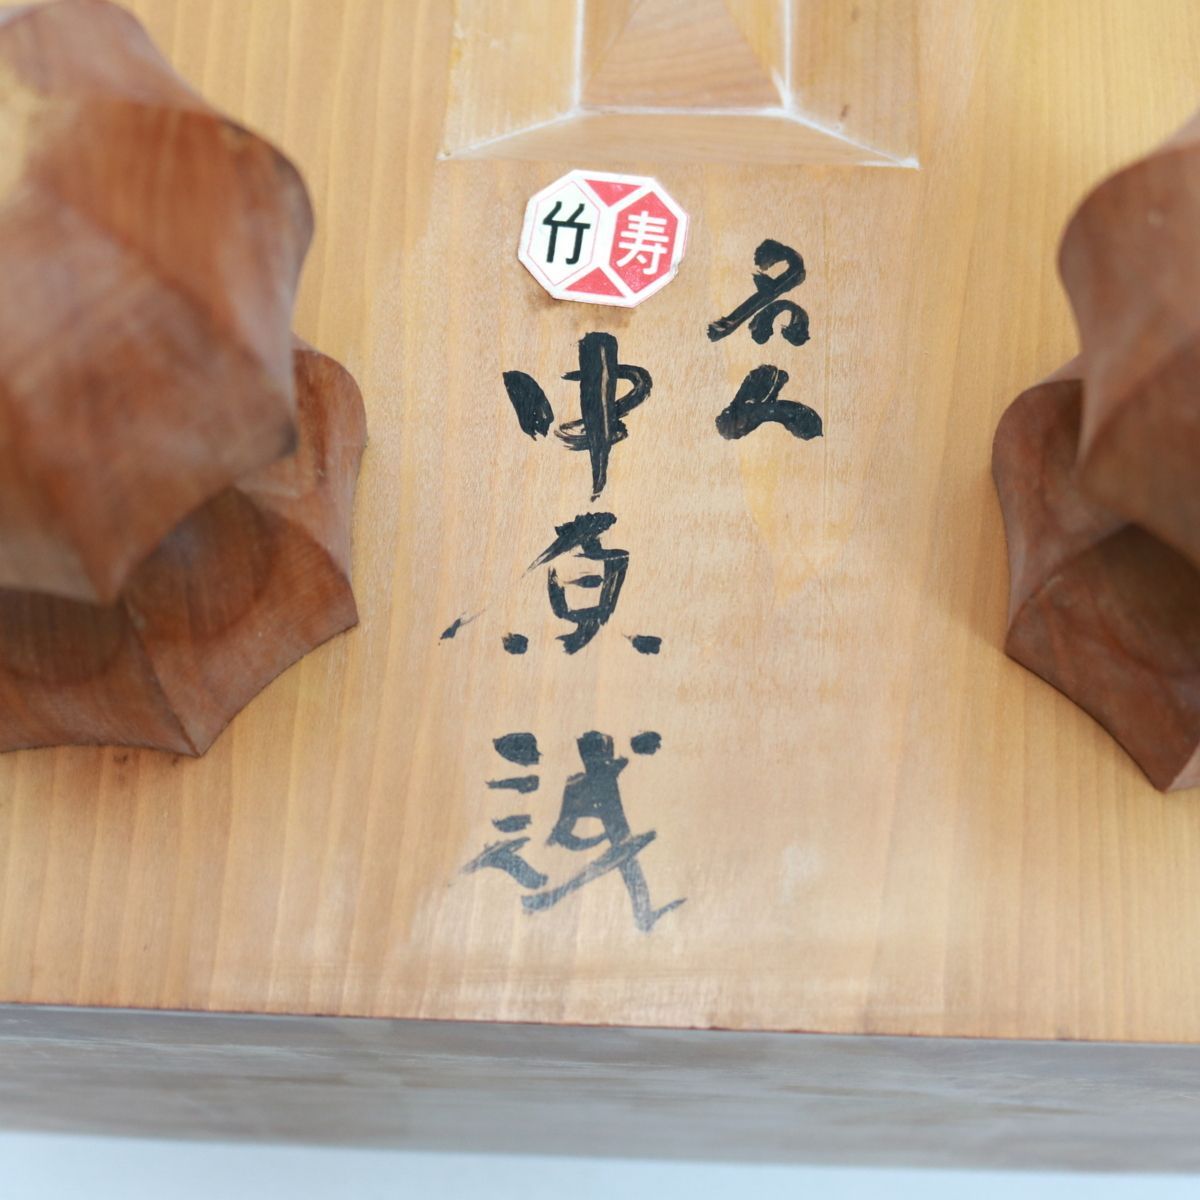 竹寿
名人
中原誠